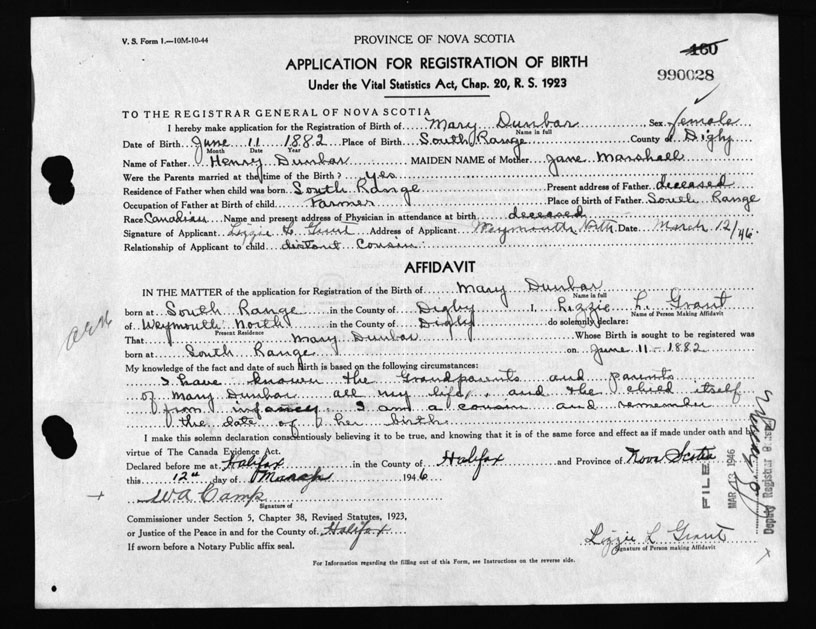 V. S. Form 1.—10M-10-44
PROVINCE OF NOVA SCOTIA
160
APPLICATION FOR REGISTRATION OF BIRTH
990028
Under the Vital Statistics Act, Chap. 20, R. S. 1923
TO THE REGISTRAR GENERAL OF NOVA SCOTIA
I hereby make application for the Registration of Birth of Mary Dunbar Sex female
Name in full
Date of Birth June 11 1882 Place of Birth South Range County of Digby
Month Date Year
Name of Father Henry Dunbar MAIDEN NAME of Mother Jane Marshall
Were the Parents married at the time of the Birth? Yes
Residence of Father when child was born South Range Present address of Father deceased
Occupation of Father at Birth of child Farmer Place of birth of Father South Range
Race Canadian Name and present address of Physician in attendance at birth deceased
Signature of Applicant Lizzie L. Grant Address of Applicant Weymouth Nrth. Date March 12/46.
Relationship of Applicant to child distant Cousin
AFFIDAVIT
IN THE MATTER of the application for Registration of the Birth of Mary Dunbar
Name in full
born at South Range in the County of Digby I, Lizzie L. Grant
Name of Person Making Affidavit
of Weymouth North in the County of Digby do solemnly declare:
Present Residence
That Mary Dunbar Whose Birth is sought to be registered was
born at South Range on June 11 - 1882
My knowledge of the fact and date of such Birth is based on the following circumstances:
I have known the Grandparents and parents
of Mary Dunbar all my life, and the child itself
from infancy. I am a cousin and remember
the date of her birth.
I make this solemn declaration conscientiously believing it to be true, and knowing that it is of the same force and effect as if made under oath and by
virtue of The Canada Evidence Act.
Declared before me at Halifax in the County of Halifax and Province of Nova Scotia
this 12th day of March 1946
W A Camp
Signature of
Commissioner under Section 5, Chapter 38, Revised Statutes, 1923,
or Justice of the Peace in and for the County of Halifax
If sworn before a Notary Public affix seal.
Lizzie L Grant
Signature of Person making Affidavit
For Information regarding the filling out of this Form, see Instructions on the reverse side.
FILED
MAR 13 1946
Deputy Registrar General